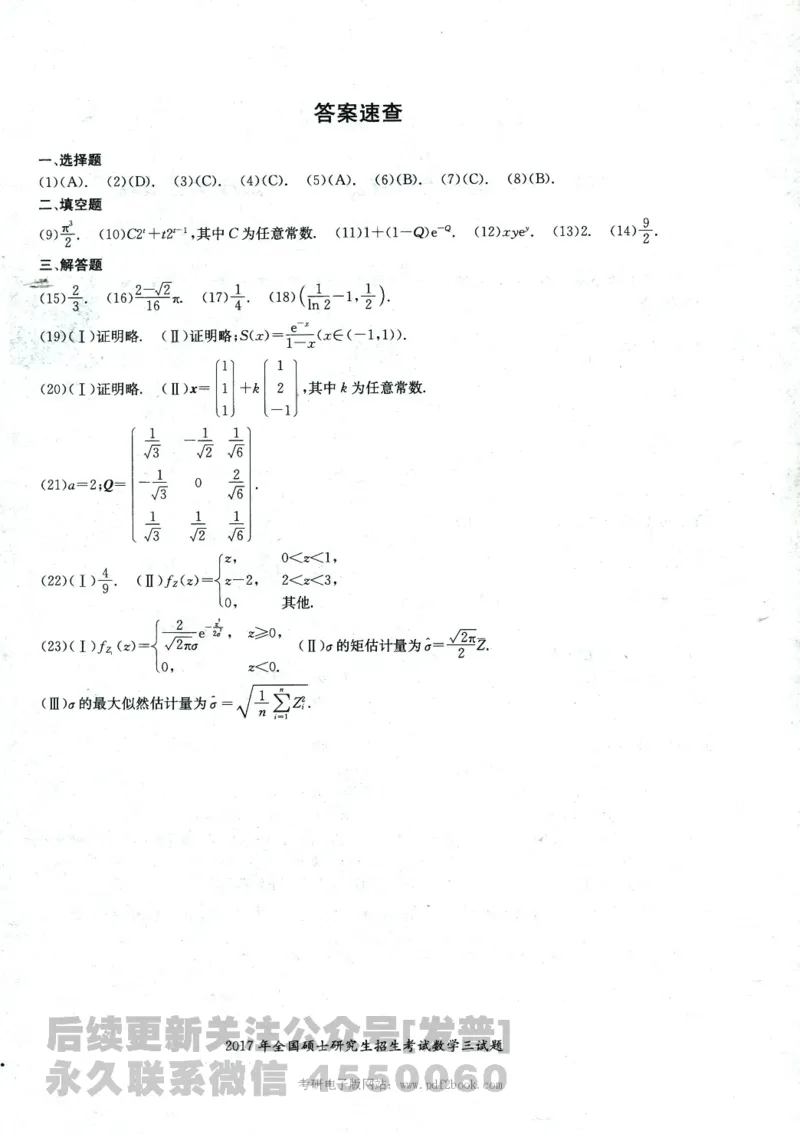 答案速查
一、选择题
(1)(A). (2)(D). (3)(C). (4)(C). (5)(A). (6)(B). (7)(C). (8)(B).
二、填空题
(9)$\frac{\pi^3}{2}$. (10)$C2^t+t2^{t-1}$,其中 C 为任意常数. (11)$1+(1-Q)e^{-Q}$. (12)$xye^y$. (13)2. (14)$\frac{9}{2}$.
三、解答题
(15)$\frac{2}{3}$. (16)$\frac{2-\sqrt{2}}{16}\pi$. (17)$\frac{1}{4}$. (18)$\left(\frac{1}{\ln 2}-1,\frac{1}{2}\right)$.
(19)(Ⅰ)证明略. (Ⅱ)证明略;$S(x)=\frac{e^{-x}}{1-x}(x\in(-1,1))$.
(20)(Ⅰ)证明略. (Ⅱ)$x=\begin{bmatrix}1\\1\\1\end{bmatrix}+k\begin{bmatrix}1\\2\\-1\end{bmatrix}$,其中 k 为任意常数.
(21)$a=2;Q=\begin{bmatrix}\frac{1}{\sqrt{3}}&-\frac{1}{\sqrt{2}}&\frac{1}{\sqrt{6}}\\-\frac{1}{\sqrt{3}}&0&\frac{2}{\sqrt{6}}\\\frac{1}{\sqrt{3}}&\frac{1}{\sqrt{2}}&\frac{1}{\sqrt{6}}\end{bmatrix}$.
(22)(Ⅰ)$\frac{4}{9}$. (Ⅱ)$f_Z(z)=\begin{cases}z,&0<z<1,\\z-2,&2<z<3,\\0,&其他.\end{cases}$
(23)(Ⅰ)$f_{Z_1}(z)=\begin{cases}\frac{2}{\sqrt{2\pi}\sigma}e^{-\frac{z^2}{2\sigma^2}},&z\geqslant0,\\0,&z<0.\end{cases}$ (Ⅱ)σ 的矩估计量为$\hat{\sigma}=\frac{\sqrt{2\pi}}{2}\overline{Z}$.
(Ⅲ)σ 的最大似然估计量为$\hat{\sigma}=\sqrt{\frac{1}{n}\sum_{i=1}^{n}Z_i^2}$.
后续更新关注公众号[发普]
2017 年全国硕士研究生招生考试数学三试题
永久联系微信 4550060
考研电子版网站: www.pdf2book.com